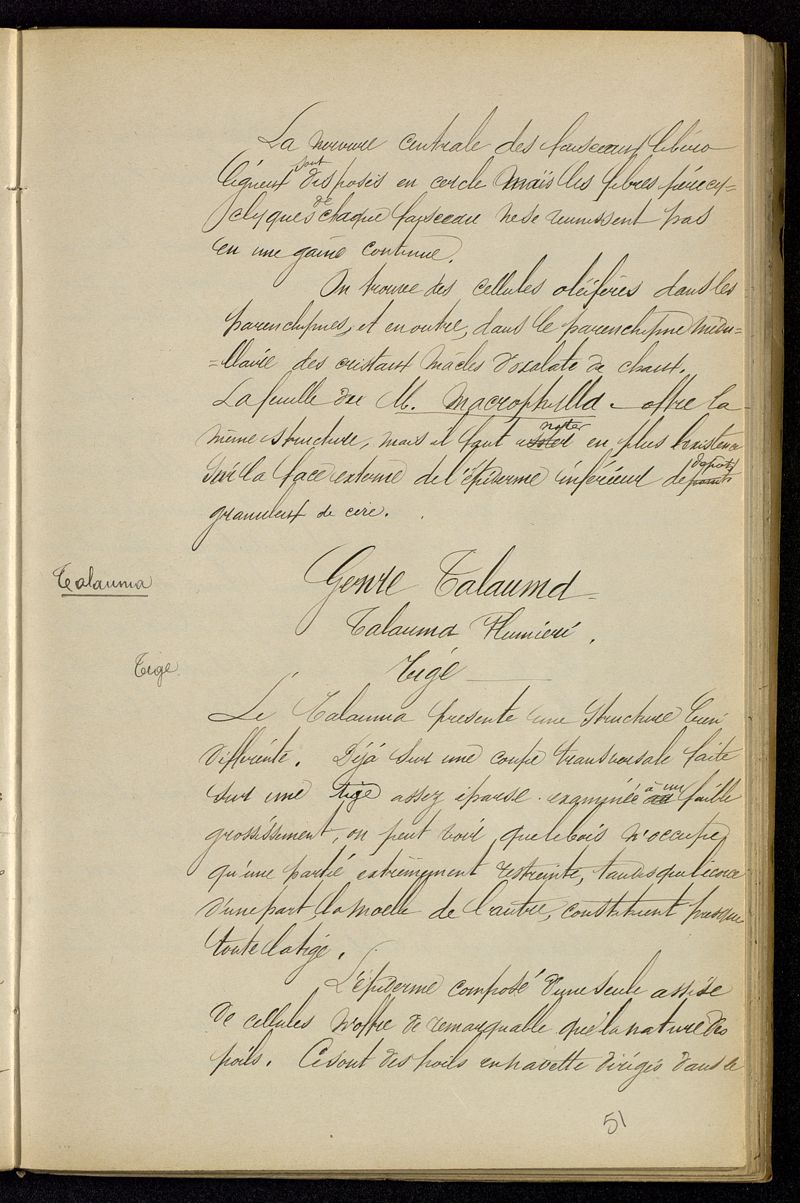 La nervure centrale des faisceaux libéro
ligneux sont disposés en cercle mais les fibres péricy=
clyques de chaque faisceau ne se reunissent pas
en une gaine continue.
On trouve des cellules oléifères dans les
parenchymes, et en outre, dans le parenchyme médu=
=llaire des cristaux mâcles d'oxalate de chaux.
La feuille du M. Macrophylla - offre la
même structure, mais il faut noter en plus l'existence
sur la face externe de l'épiderme inférieur de dépots
granuleux de cire.
Talauma
Genre Talauma
Talauma Plumieri.
Tige
Tige
Le Talauma présente une structure bien
différente. Déjà sur une coupe transversale faite
sur une tige assez éparse examinée à un faible
grossissement, on peut voir que le bois n'occupe
qu'une partie extrêmement restreinte, tandis que l'écorce
d'une part la moelle de l'autre, constituent presque
toute la tige.
L'épiderme composé d'une seule assise
de cellules n'offre de remarquable que la nature des
poils. Ce sont des poils en navette dirigés dans le
51